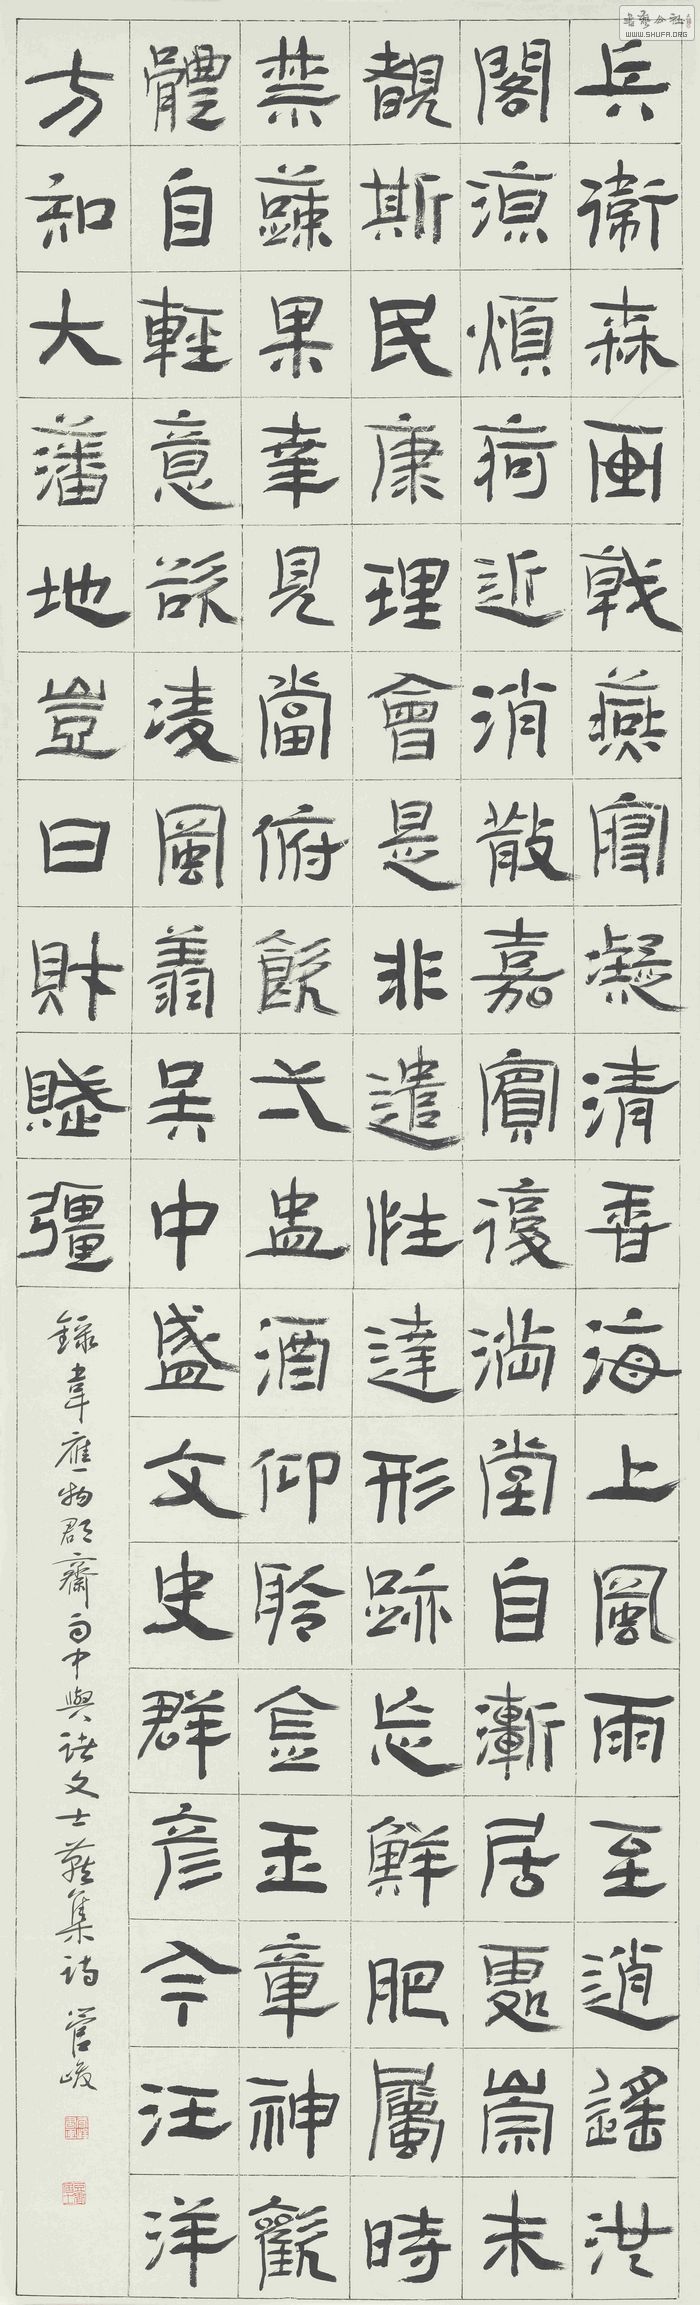 兵衛森画戟燕寢凝清香海上風雨至逍遙池
閣涼煩疴近消散嘉賓復滿堂自慚居處崇未
覩斯民康理會是非遣性達形跡忘鮮肥屬時
禁蔬果幸見當俯飲弌盃酒仰聆金玉章神歡
體自輕意欲凌風翥吳中盛文史群彥今汪洋
方知大藩地豈曰財賦彊
錄韋應物郡齋雨中與諸文士燕集詩 管峻
WWW.SHUFA.ORG